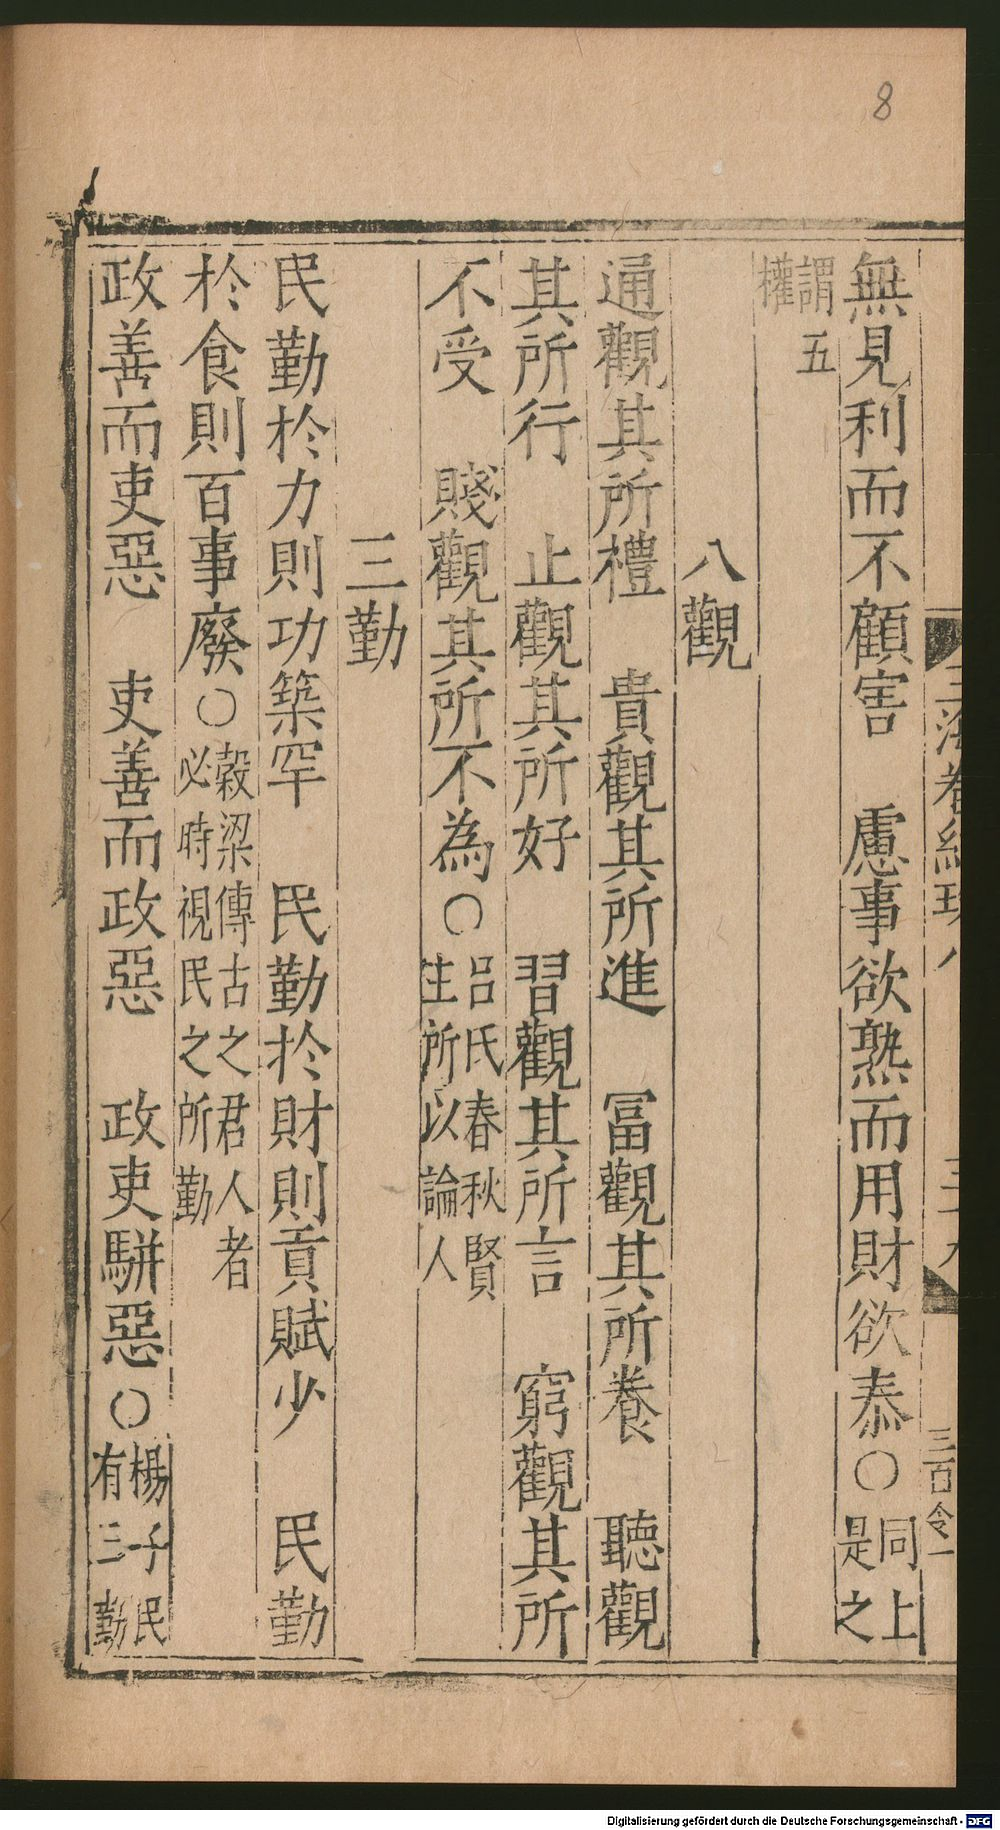 8
無見利而不顧害　慮事欲熟而用財欲泰○同上是之
謂五權
八觀
通觀其所禮　貴觀其所進　冨觀其所養　聽觀
其所行　止觀其所好　習觀其所言　窮觀其所
不受　賤觀其所不為○呂氏春秋賢主所以論人
三勤
民勤於力則功築罕　民勤於財則貢賦少　民勤
於食則百事廢○榖梁傳古之君人者必時視民之所勤
政善而吏惡　吏善而政惡　政吏駢惡○楊子民有三勤
Digitalisierung gefördert durch die Deutsche Forschungsgemeinschaft - DFG